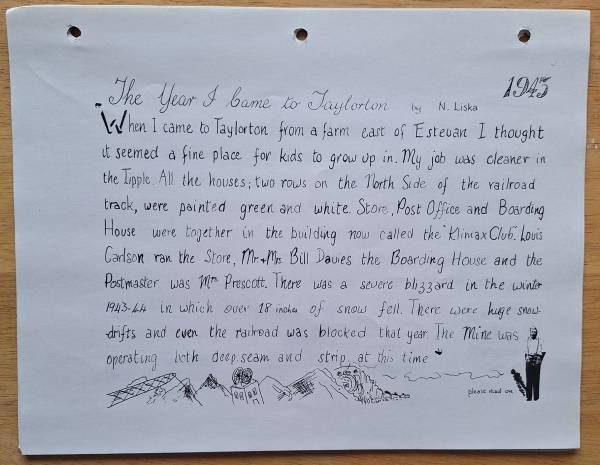 1943
The Year I Came to Taylorton by N. Liska
When I came to Taylorton from a farm east of Estevan I thought
it seemed a fine place for kids to grow up in. My job was cleaner in
the Tipple. All the houses; two rows on the North Side of the railroad
track, were painted green and white. Store, Post Office and Boarding
House were together in the building now called the "Klimax Club". Louis
Carlson ran the Store, Mr + Mrs Bill Davies the Boarding House and the
Postmaster was Mrs Prescott. There was a severe blizzard in the winter
1943-44 in which over 18 inches of snow fell. There were huge snow-
drifts and even the railroad was blocked that year. The Mine was
operating both deep seam and strip at this time
please read on